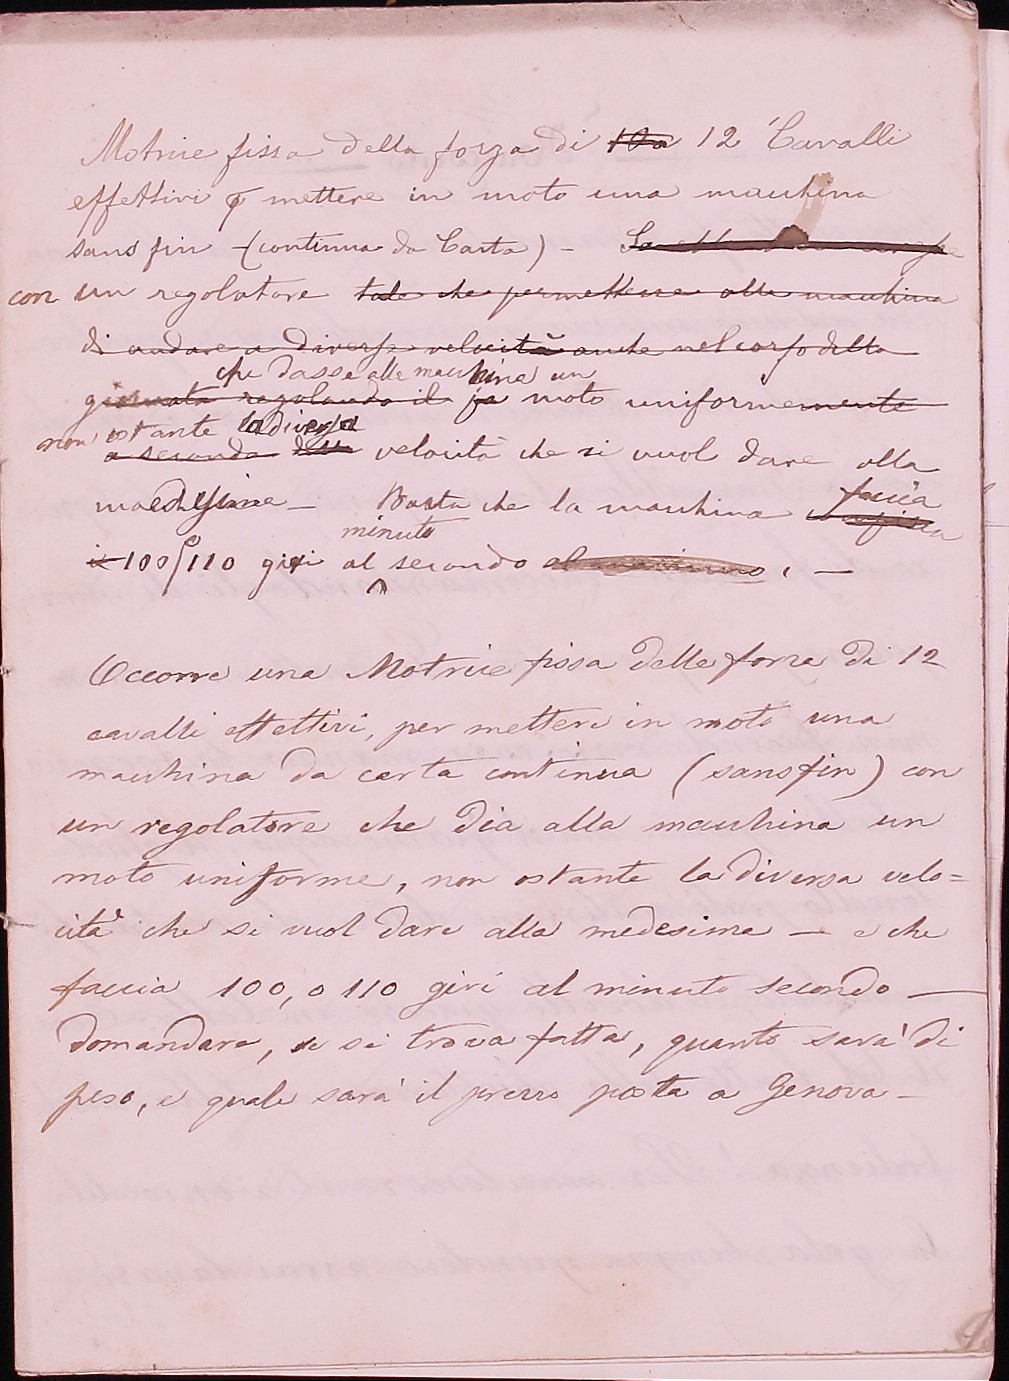 Motrice fissa della forza di 10 a 12 Cavalli
effettivi p mettere in moto una macchina
sans fin (continua da Carta) -
con un regolatore tale che permettesse alla macchina
di andare a diverse velocità anche nel corso della
che dasse alla macchina un
giornata regolando il fa moto uniformemente
non ostante la diversa
a seconda della velocità che si vuol dare alla
medesima - Basta che la macchina faccia
minuto
100/110 giri al secondo al massimo, -
Occorre una Motrice fissa della forza di 12
cavalli effettivi, per mettere in moto una
macchina da carta continua (sansfin) con
un regolatore che dia alla macchina un
moto uniforme, non ostante la diversa velo=
cità che si vuol dare alla medesima - e che
faccia 100, o 110 giri al minuto secondo -
domandare, se si trova fatta, quanto sarà di
peso, e quale sarà il prezzo posta a Genova -